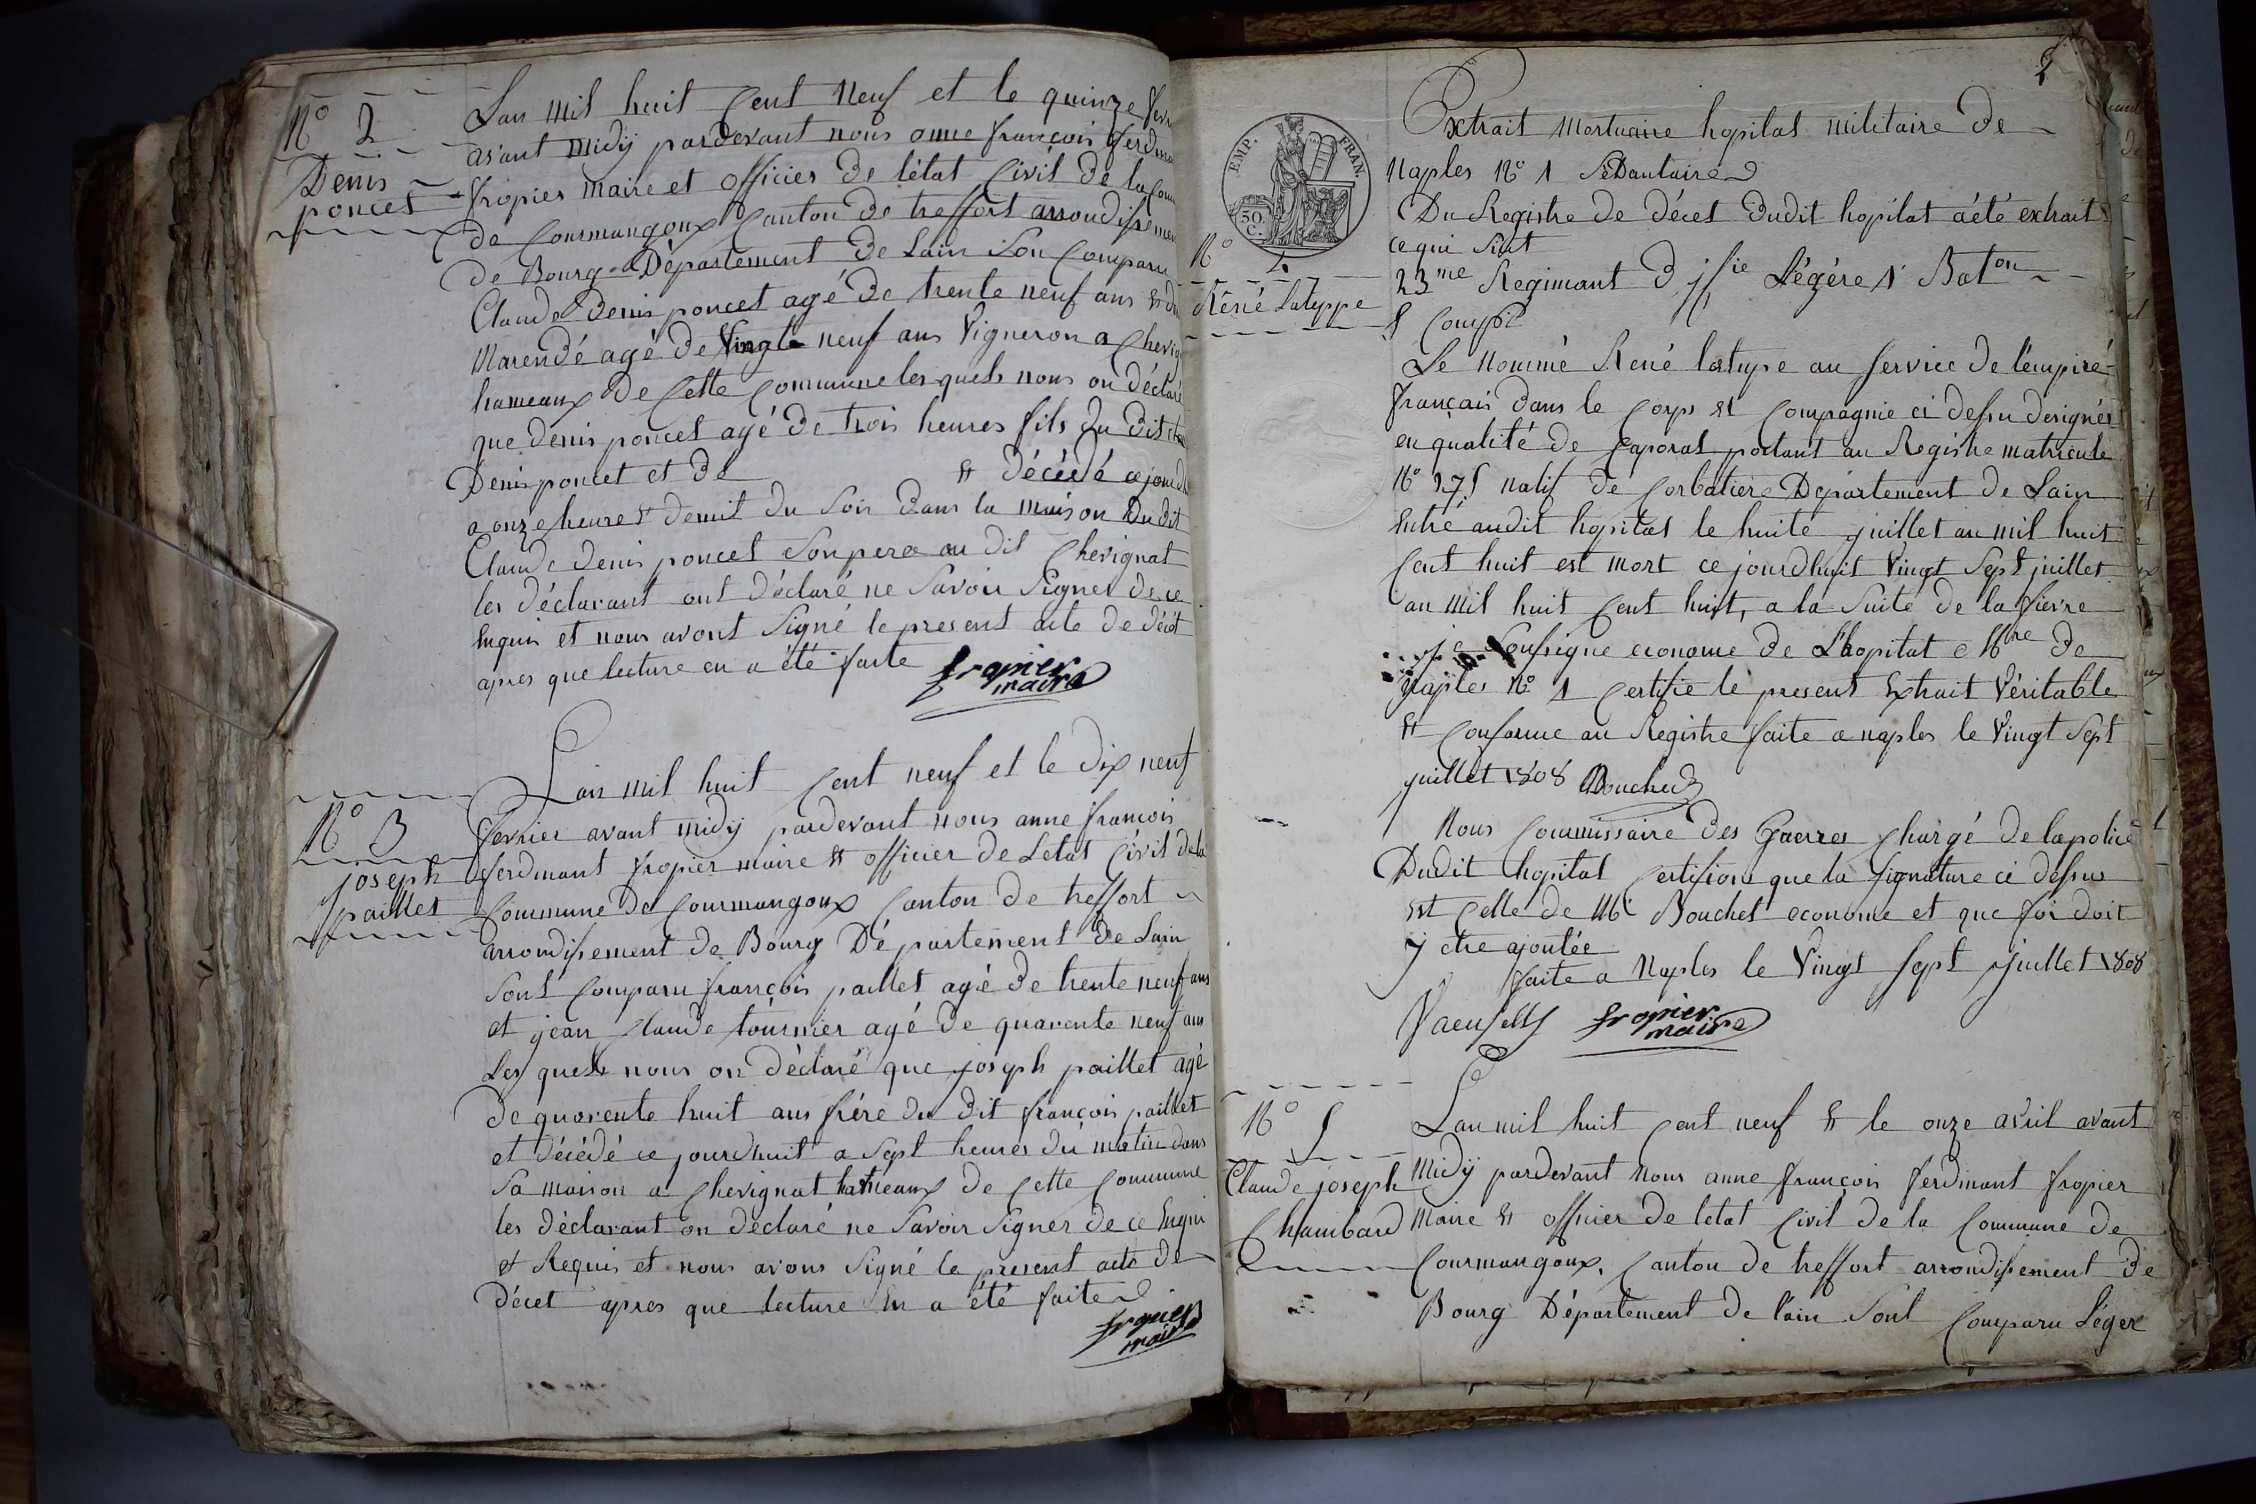 N° 2
Denis
poncet
Lan mil huit Cent neuf et le quinze
avant midy pardevant nous anne françois
fropier maire et officier de létat Civil de la
de Courmangoux Canton de treffort arrondissemen
de Bourg Département de Lain Son Comparu
Claude Denis poncet agé de trente neuf ans
Marendé agé de Vingt neuf ans Vigneron a
hameaux de Cette Commune les quels nous on déclaré
que denis poncet agé de trois heures fils du dit
Denis poncet et de et décédé
a onze heure et demit du Soir dans la maison dudit
Claude denis poncet Son pere au dit Chevignat
les déclarant ont déclaré ne Savoir Signer de ce
Enquis et nous avont Signé le present acte de décet
apres que lecture en a été faite
fropier
maire
N° 3
joseph
paillet
Lan mil huit Cent neuf et le dix neuf
fevrier avant midy pardevant nous anne françois
ferdinant fropier maire et officier de Letat Civil de la
Commune de Courmangoux Canton de treffort
arrondissement de Bourg Département de Lain
Sont Comparu françois paillet agé de trente neuf ans
et jean Claude tournier agé de quarente neuf ans
Les quels nous on déclaré que joseph paillet agé
de quarente huit ans frére du dit françois paillet
et décédé ce jourdhuit a Sept heures du matin dans
Sa maison a Chevignat hameaux de Cette Commune
les déclarant on déclaré ne Savoir Signer de ce Enqui
et Requis et nous avons Signé le present acte de
décet apres que lecture En a été faite
fropier
maire
2
EMP. FRAN.
50
C.
N° 4
Réné Latyppe
Extrait Mortuaire hopital militaire de
Naples N° 1 Sédantaire
Du Registre de décet dudit hopital aété extrait
ce qui Suit
23me Regimant Légère 1r Baton
Le nommé René latype au Service de l'empire
français dans le Corps et Compagnie ci dessu designés
en qualité de Caporal portant au Registre matricule
N° natif de Corbatiere Département de Lain
Entré audit hopital le huite juillet an mil huit
Cent huit est mort ce jourdhuit Vingt Sept juillet
an mil huit Cent huit, a la Suite de la fievre
je Soussigne econome de L'hopital Mre de
Naples N° 1 Certifie le present Extrait Véritable
et Conforme au Registre faite a naples le Vingt Sept
juillet 1808 Bouchet
Nous Commissaire des Guerres Chargé de la police
Dudit hopital Certifions que la Signature ci dessus
est Celle de Mr Bouchet econome et que foi doit
y etre ajoutée
faite a Naples le Vingt Sept juillet 1808
fropier
maire
N° 5
Claude joseph
Chambard
Lan mil huit Cent neuf et le onze avril avant
Midy pardevant nous anne françois ferdinant fropier
Maire et officier de letat Civil de la Commune de
Courmangoux, Canton de treffort arrondissement de
Bourg Département de lain Sont Comparu Léger